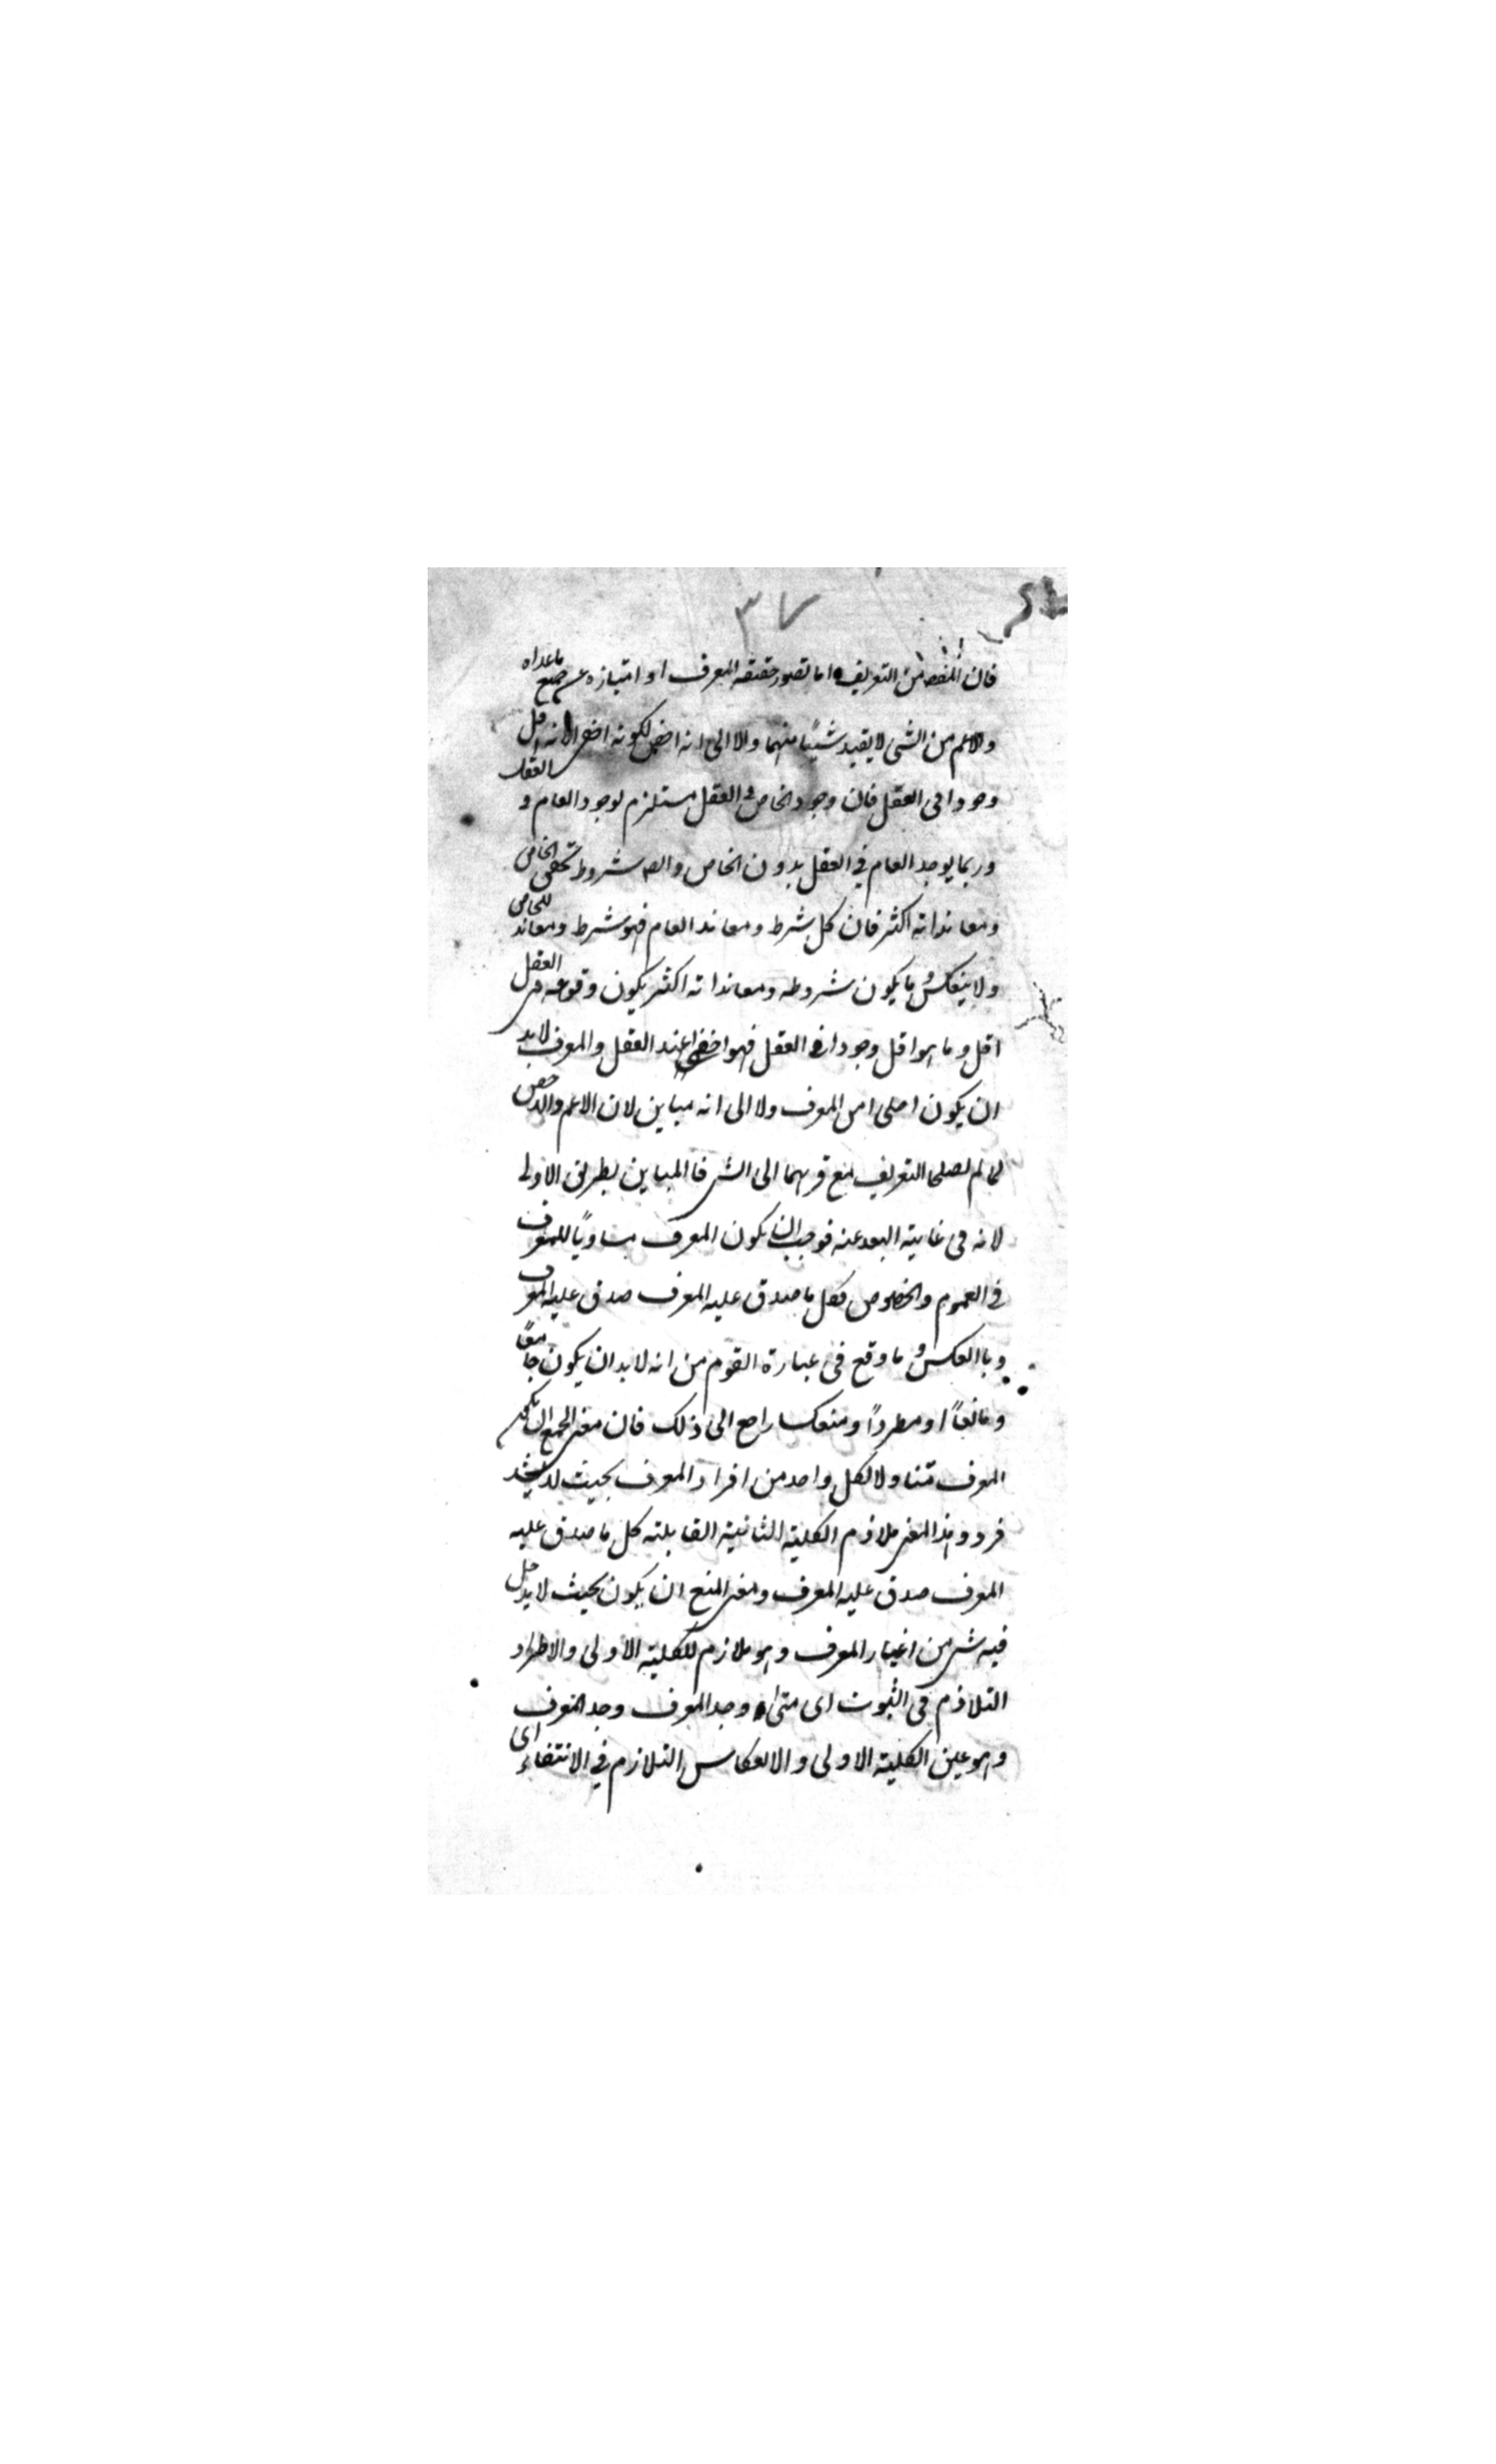 ٣٧
فان المقصد من التعريف اما تصور حقيقة المعرف او امتيازه عن جميع ماعداه
والاعم من الشى لا يفيد شيئًا منهما والا الى انه اخص لكونه اخفى لانه اقل
وجودا فى العقل فان وجود الخاص فى العقل مستلزم لوجود العام فى العقل
وربما يوجد العام فى العقل بدون الخاص وايضا شروط تحقق الخاص
ومعانداته اكثر فان كل شرط ومعاند العام فهو شرط ومعاند للخاص
ولا ينعكس وما يكون شروطه ومعانداته اكثر يكون وقوعه فى العقل
اقل وما هو اقل وجودا فى العقل فهو اخفى عند العقل والمعرف لابد
ان يكون اجلى من المعرف ولا الى انه مباين لان الاعم والاخص
لما لم يصلحا التعريف مع قربهما الى الشى فالمباين بطريق الاولى
لانه فى غاية البعد عنه فوجب ان يكون المعرف مساويًا للمعرف
فى العموم والخصوص فكل ما صدق عليه المعرف صدق عليه المعرف
وباالعكس وما وقع فى عبارة القوم من انه لابد ان يكون جامعًا
ومانعًا او مطردًا ومنعكسا راجع الى ذلك فان معنى الجمع ان يكون
المعرف متناولا لكل واحد من افراد المعرف بحيث لا يشذ
فرد وهذا المعنى ملازم الكلية الثانية القايلة كل ما صدق عليه
المعرف صدق عليه المعرف ومعنى المنع ان يكون بحيث لا يدخل
فيه شى من اغيار المعرف وهو ملازم للكلية الاولى والاطراد
التلازم فى الثبوت اى متى وجد المعرف وجد المعرف
وهو عين الكلية الاولى والانعكاس التلازم فى الانتفاء اى